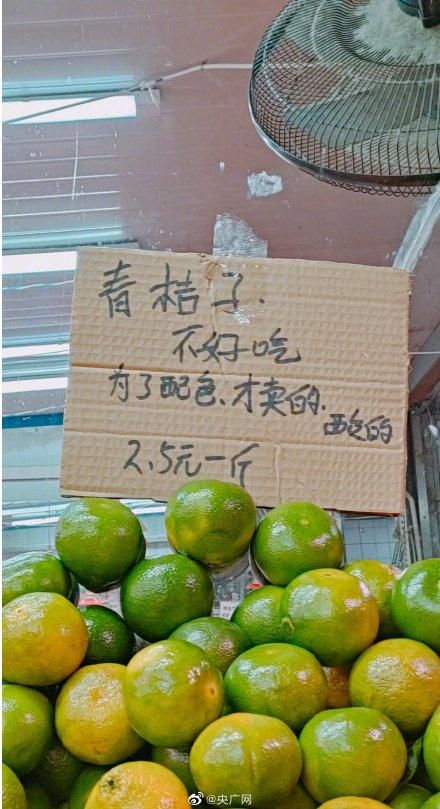 青桔子.
不好吃
为了配色、才卖的.
酸的
2.5元一斤
@央广网